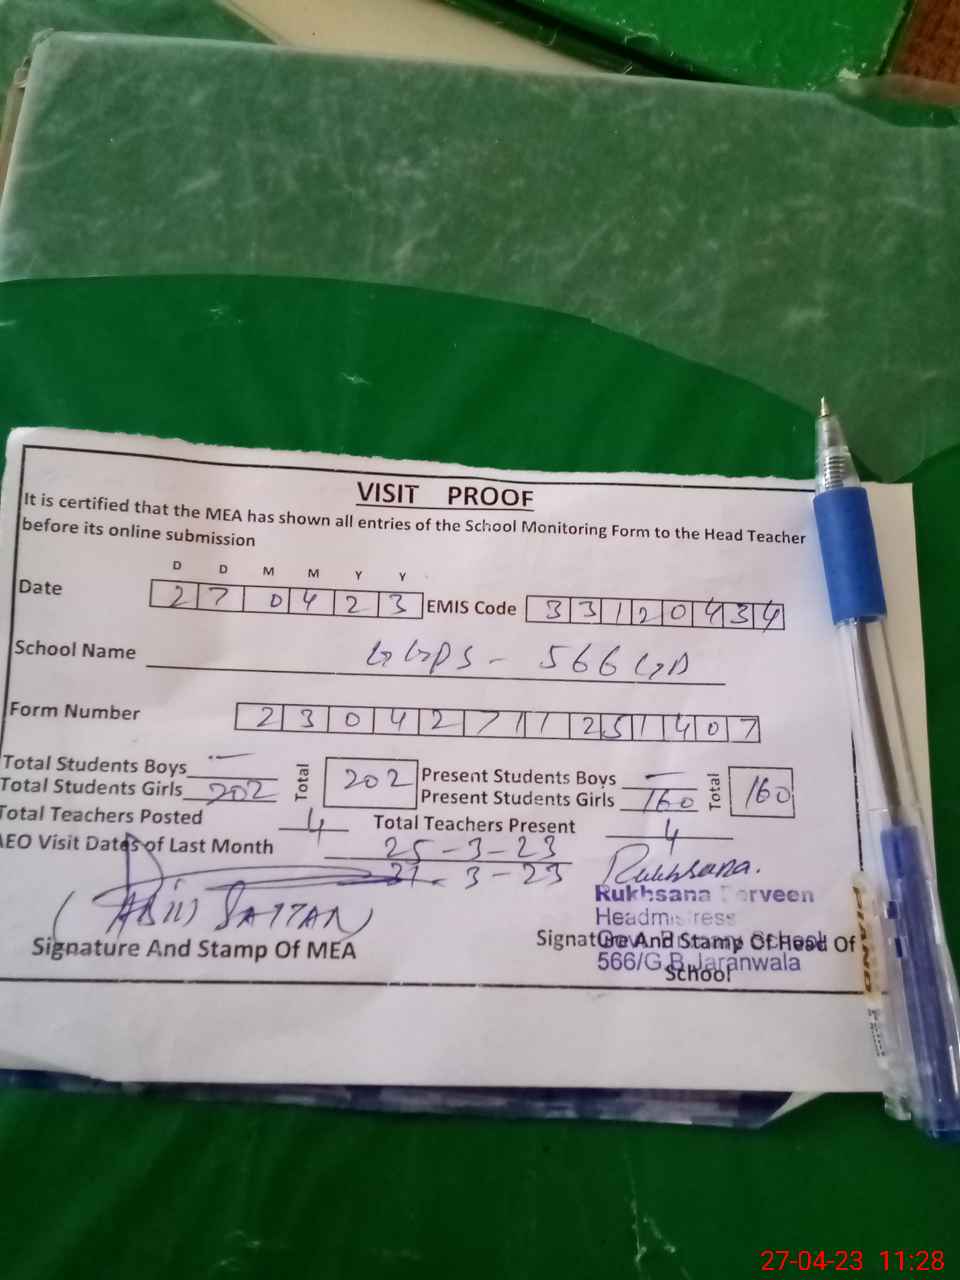 VISIT PROOF
It is certified that the MEA has shown all entries of the School Monitoring Form to the Head Teacher
before its online submission
D D M M Y Y
Date 2 7 0 4 2 3 EMIS Code 3 3 1 2 0 4 3 4
School Name GGPS - 566 GB
Form Number 2 3 0 4 2 7 1 1 2 5 1 4 0 7
Total Students Boys — Total 202 Present Students Boys — Total 160
Total Students Girls 202 Present Students Girls 160
Total Teachers Posted 4 Total Teachers Present 4
AEO Visit Dates of Last Month 25-3-23
31-3-23
Rukhsana.
Rukhsana Perveen
Headmistress
Signature And Stamp Of MEA
Signature And Stamp Of Head Of
School
Govt. Primary School
566/G.B Jaranwala
PIANO
27-04-23 11:28